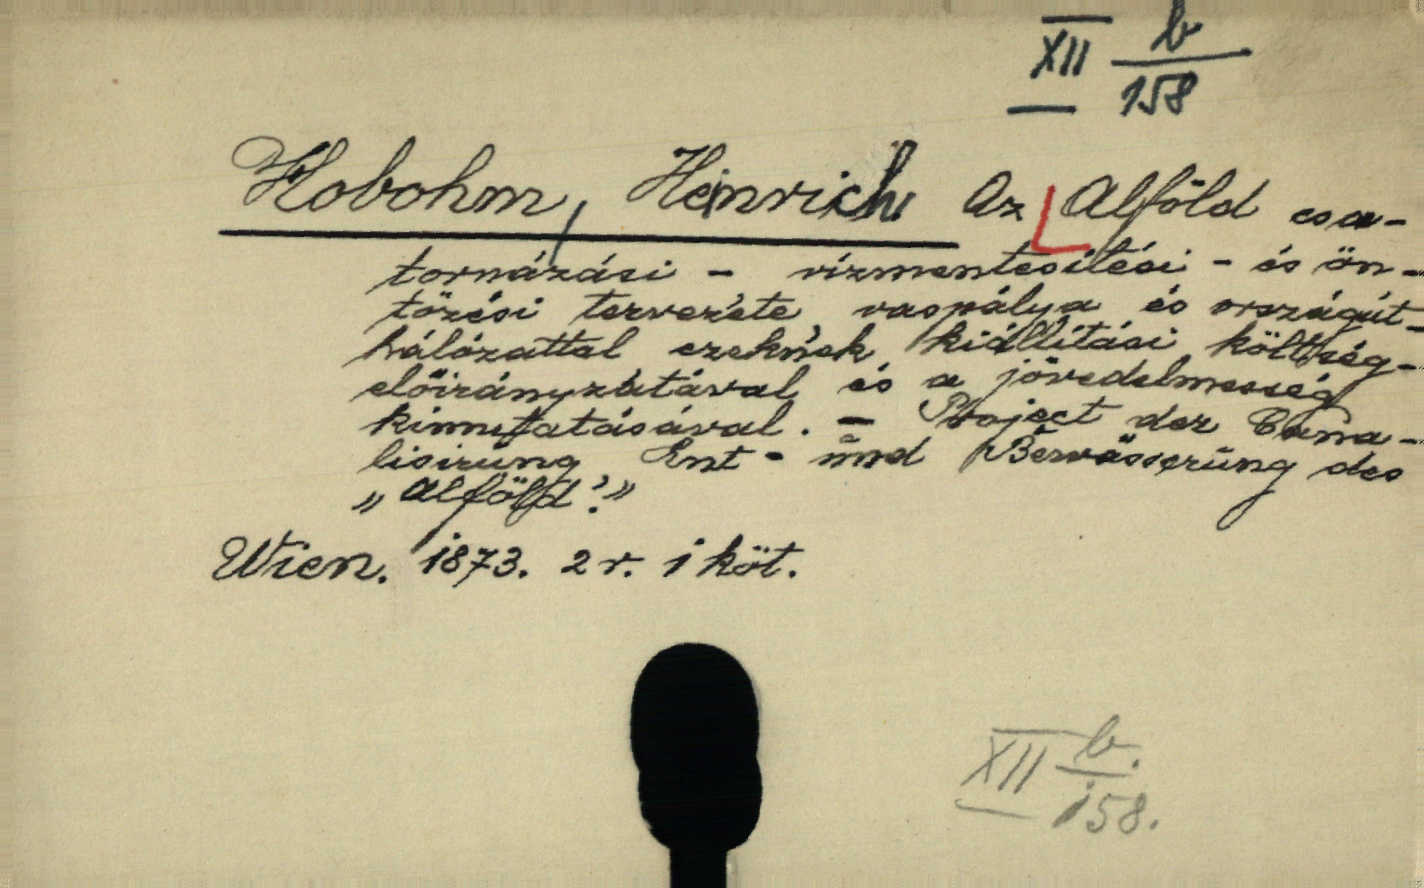 XII b/158
Hobohm, Heinrich Az Alföld csa-
tornázási - vízmentesitési - és ön-
tözési tervezete vaspálya és országút-
hálózattal ezeknek kiállítási költség-
előirányzatával és a jövedelmesség
kimutatásával. - Project der Cana-
lisirung Ent- und Bewässerung des
„Alföld".
Wien. 1873. 2 r. 1 köt.
XII b./158.